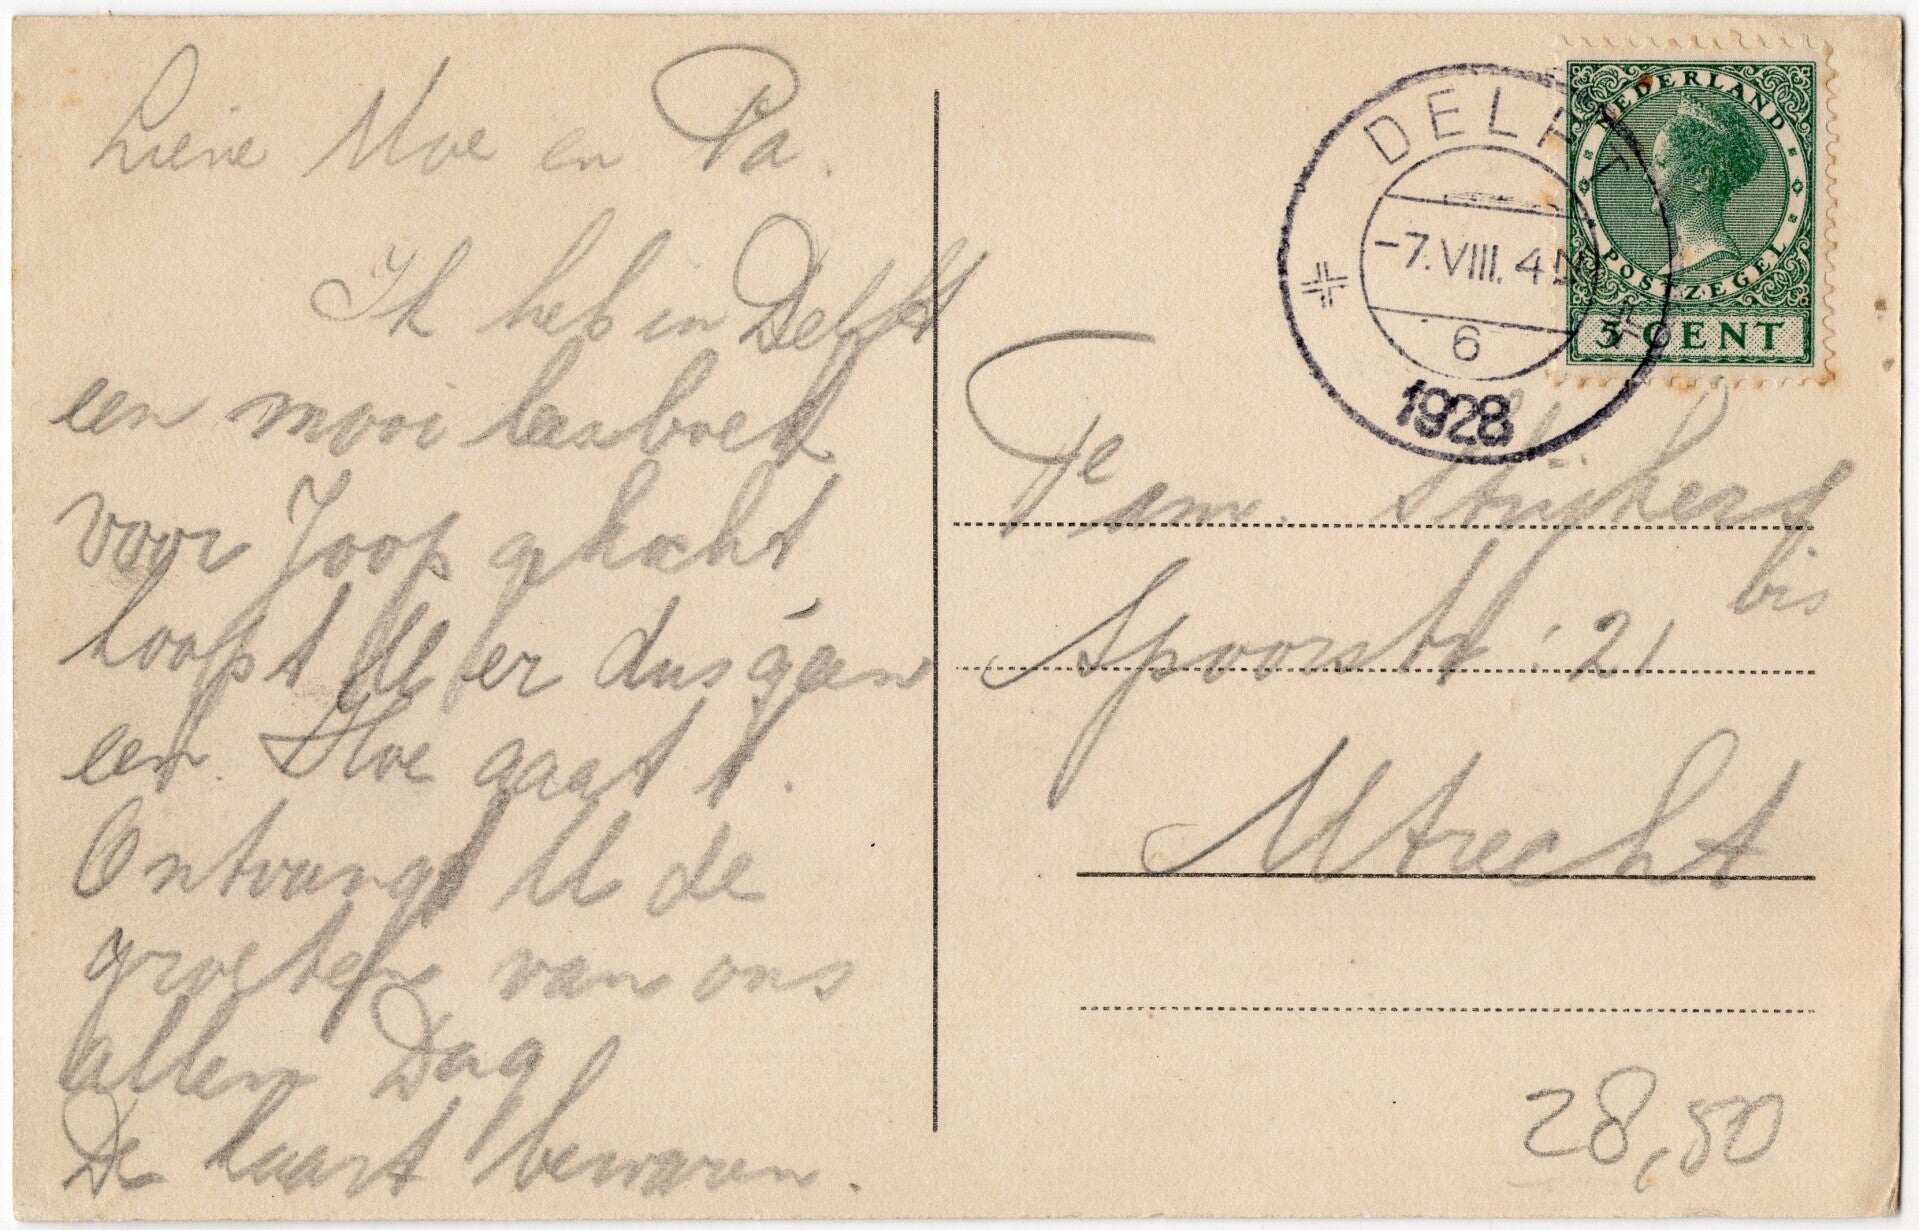 Lieve Moe en Pa.
Ik heb in Delft
een mooi leesboek
voor Joop gekocht
koopt U er dus geen
een Hoe gaat t.
Ontvangt U de
groeten van ons
allen Dag
De kaart bewaren.
DELFT
-7.VIII. 4N
6
1928
NEDERLAND
POSTZEGEL
5 CENT
Fam. Strijkers
Spoorstr: 21 bis
Utrecht
28,50